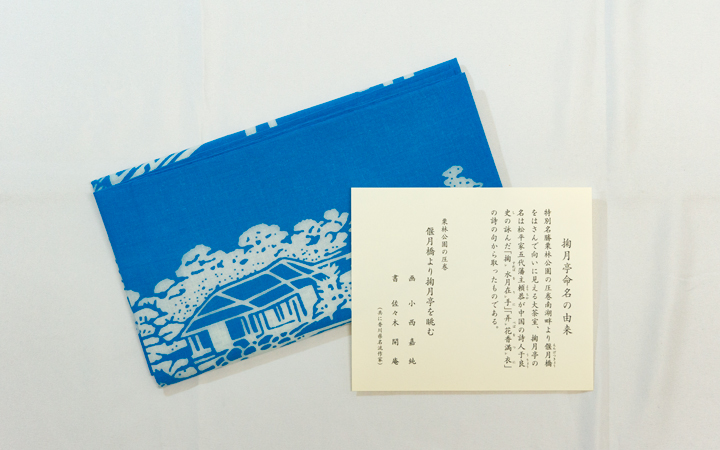 掬月亭命名の由来
特別名勝栗林公園の圧巻南湖畔より偃月橋
をはさんで向いに見える大茶室、掬月亭の
名は松平家五代藩主頼恭が中国の詩人于良
史の詠んだ「掬水月在手」「弄花香満衣」
の詩の句から取ったものである。
栗林公園の圧巻
偃月橋より掬月亭を眺む
画 小西嘉純
書 佐々木閑庵
(共に香川県名流作家)